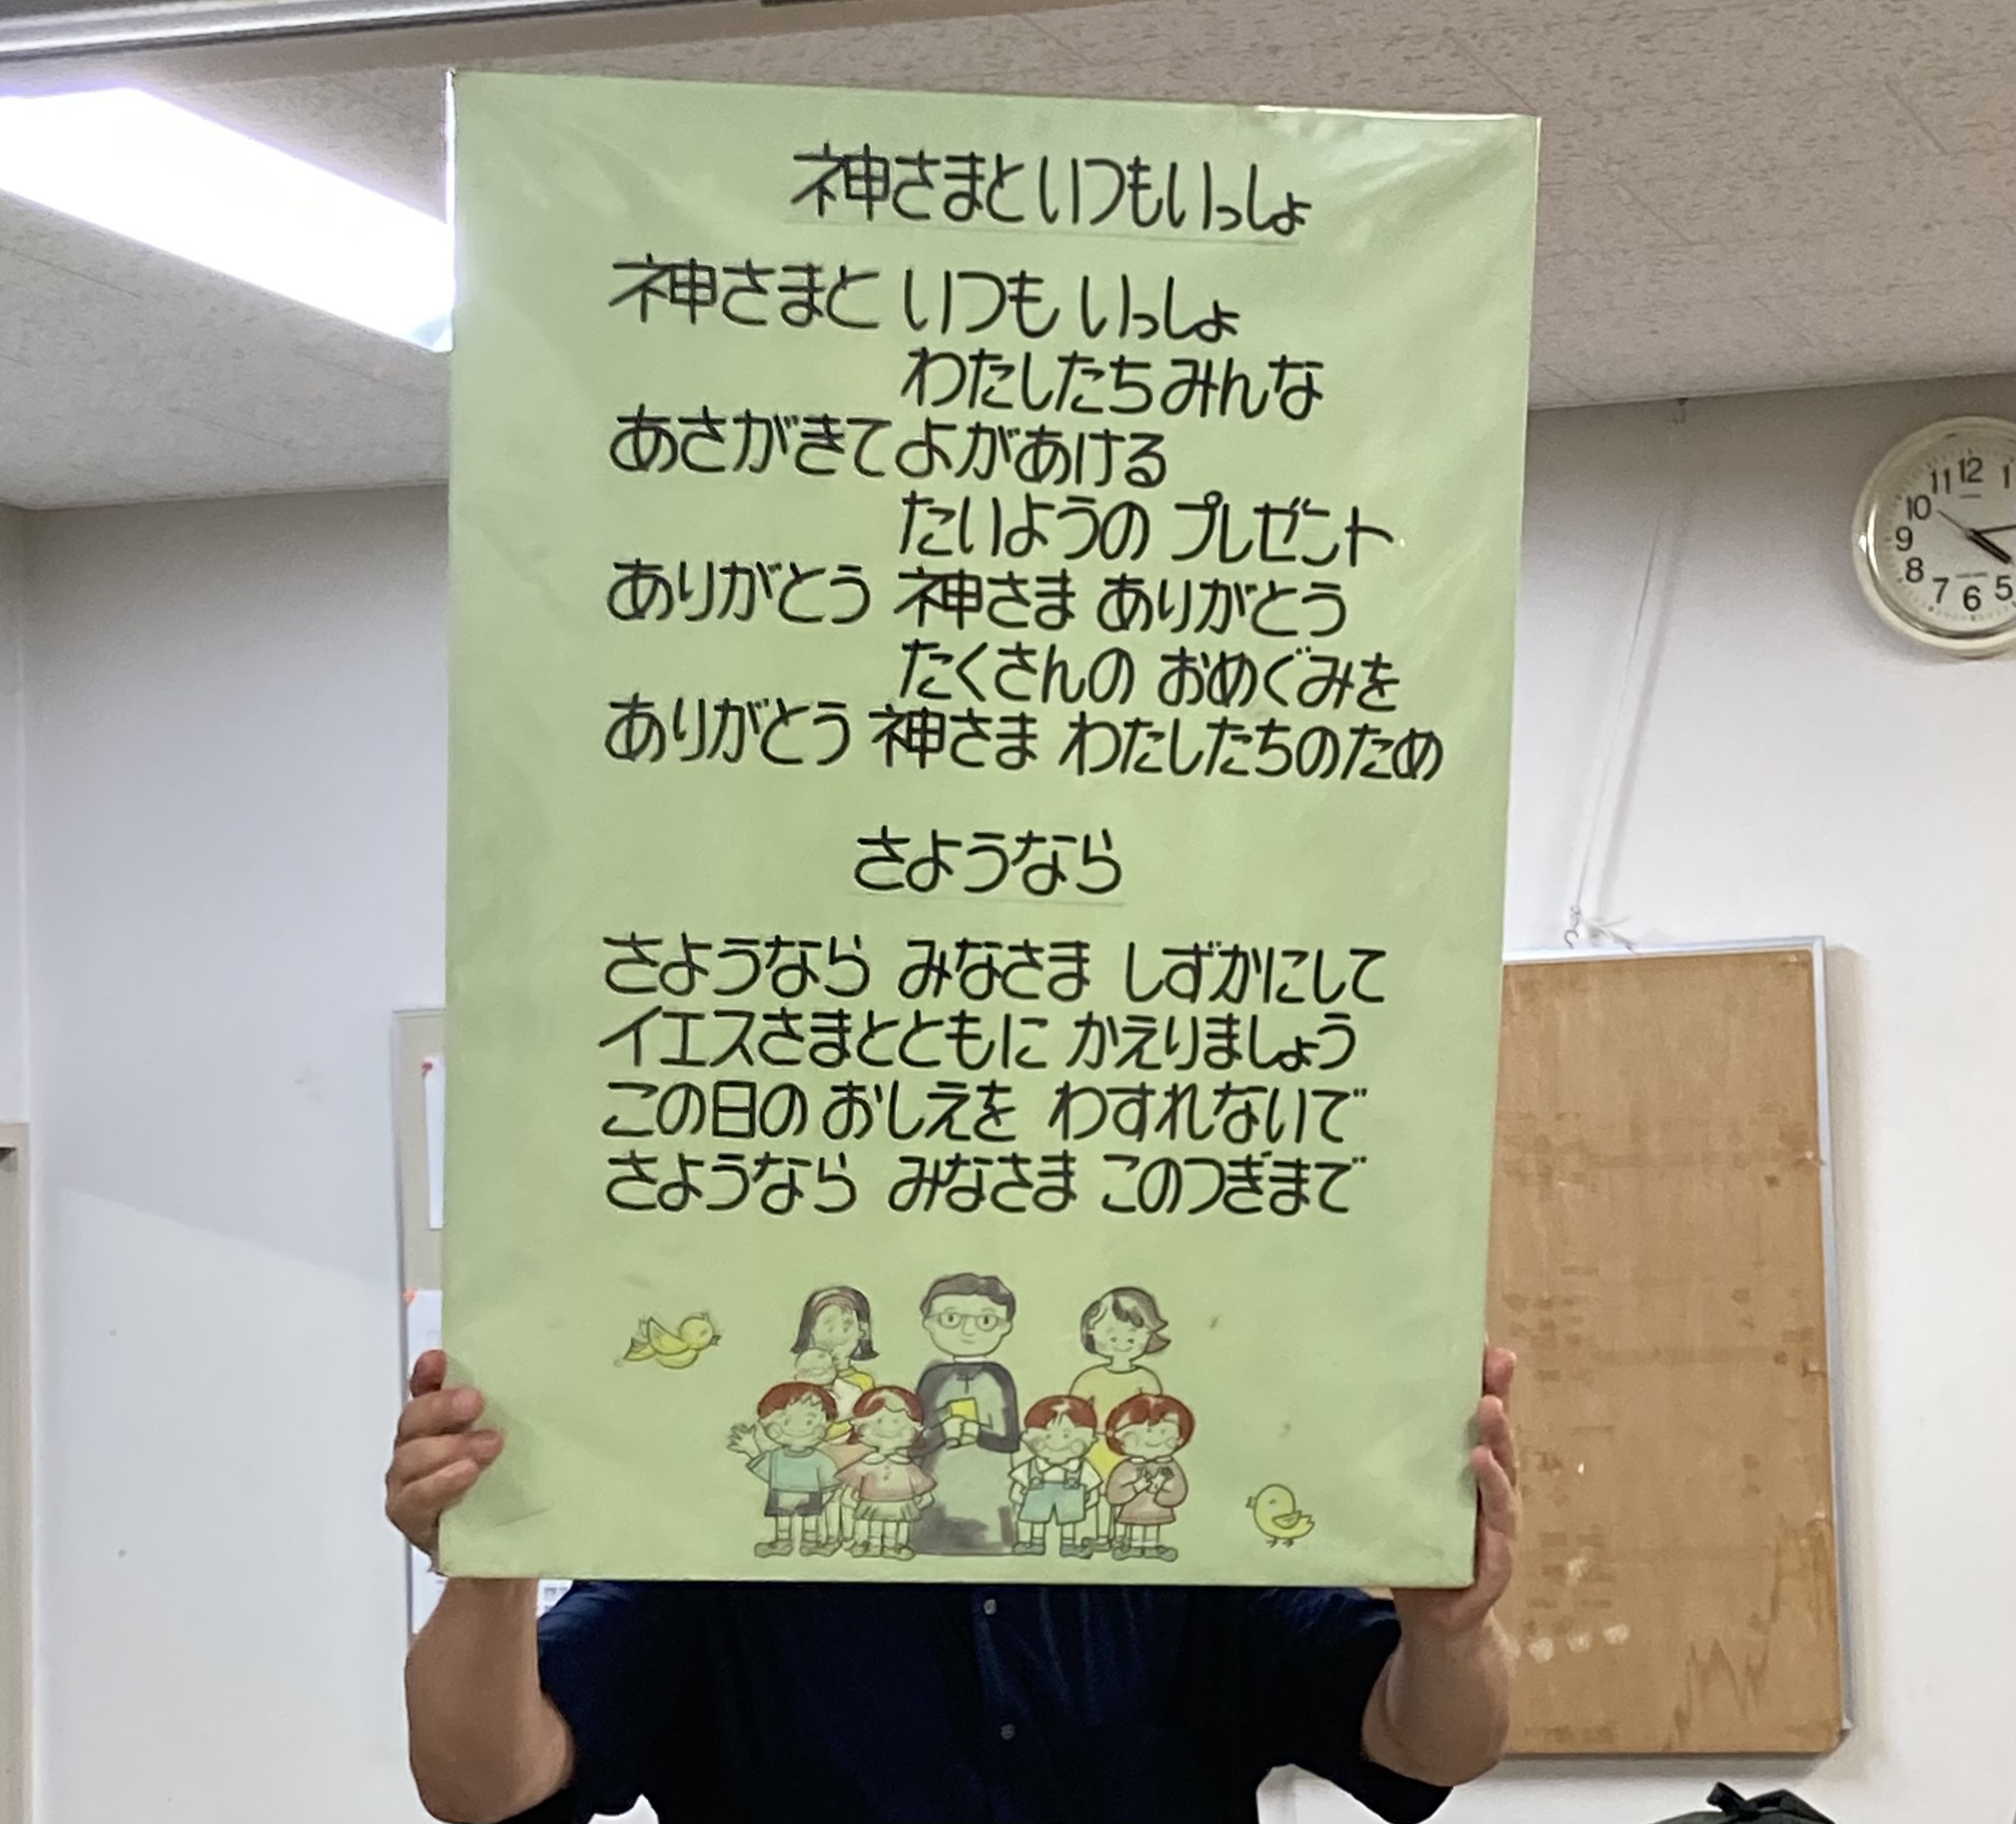 神さまといつもいっしょ
神さまと いつも いっしょ
わたしたちみんな
あさがきて よがあける
たいようの プレゼント
ありがとう 神さま ありがとう
たくさんの おめぐみを
ありがとう 神さま わたしたちのため
さようなら
さようなら みなさま しずかにして
イエスさまとともに かえりましょう
この日の おしえを わすれないで
さようなら みなさま このつぎまで
11 12 1
10
9
8
7 6 5